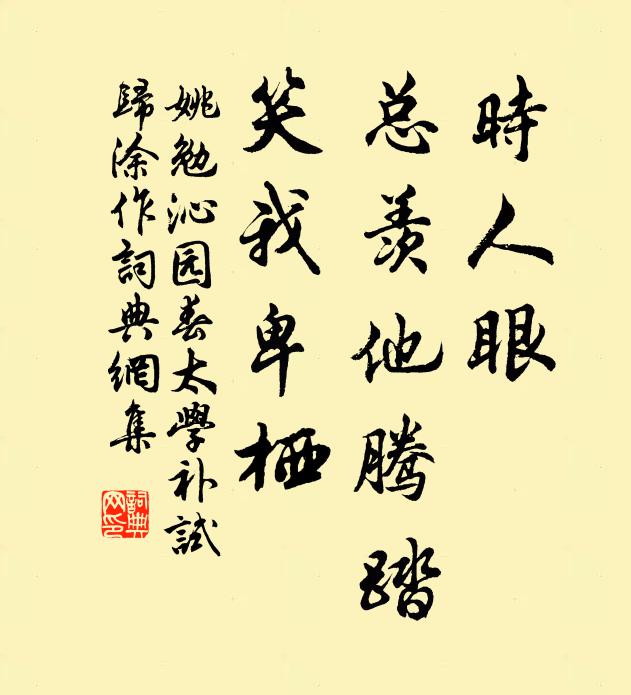 時人眼
总羡他腾踏
笑我卑栖
姚勉沁园春太學补試
歸涂作詞典網集
詞典网印